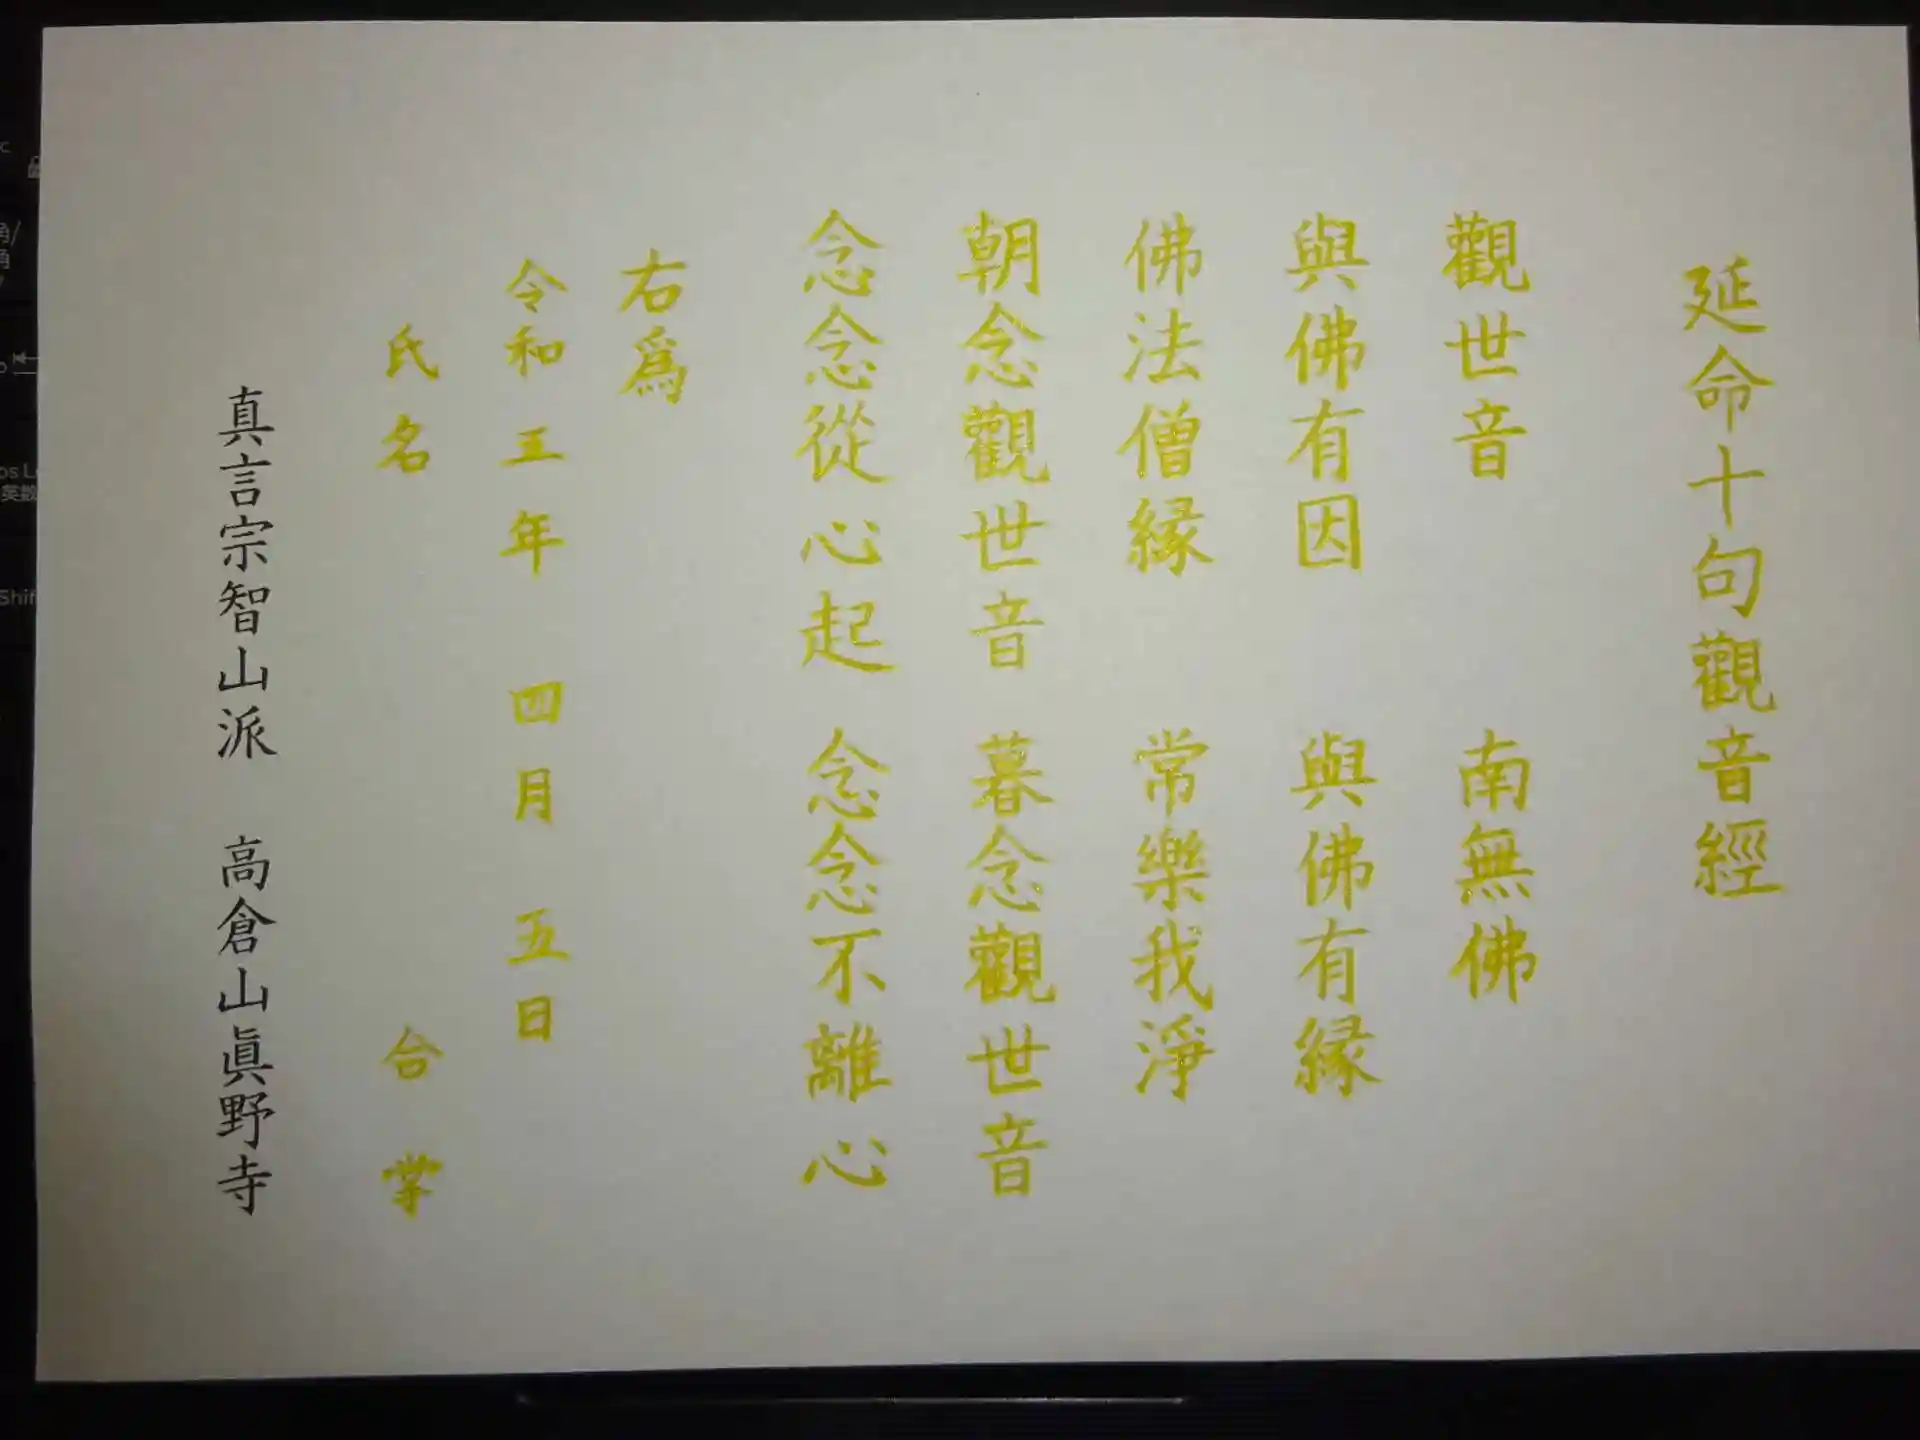 延命十句觀音經
觀世音 南無佛
與佛有因 與佛有縁
佛法僧縁 常樂我淨
朝念觀世音 暮念觀世音
念念從心起 念念不離心
右爲
令和三年 四月 五日
氏名 合掌
真言宗智山派 高倉山眞野寺